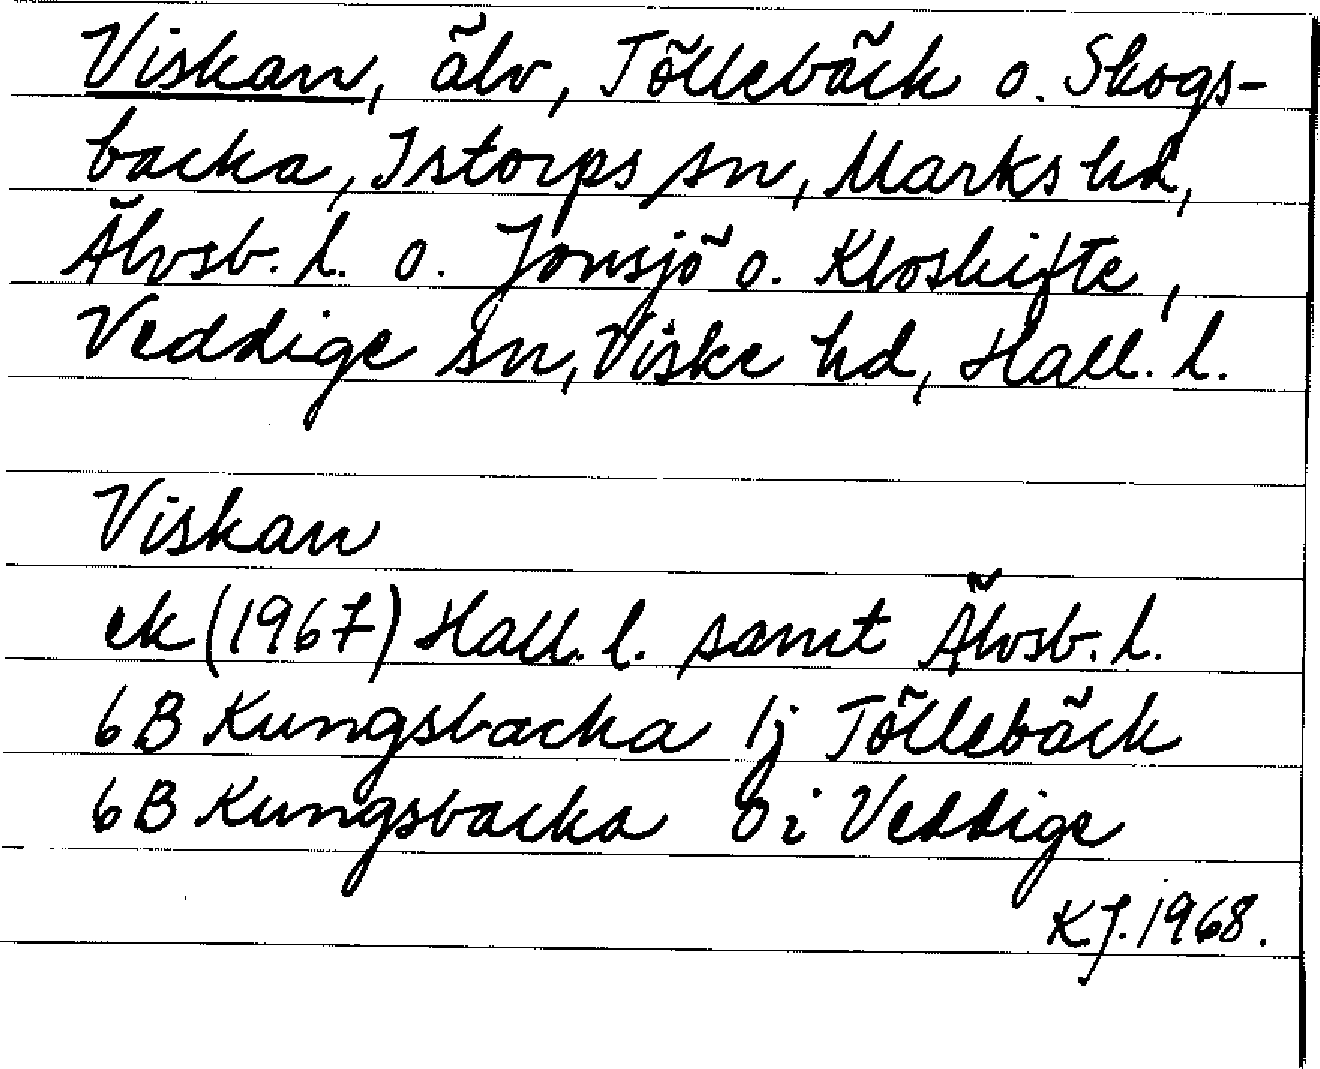 Viskan, älv, Töllebäck o. Skogs-
backa, Istorps sn, Marks hd,
Älvsb. l. o. Jonsjö o. Kloskifte,
Veddige sn, Viske hd, Hall. l.
Viskan
ek (1967) Hall. l. samt Älvsb. l.
6B Kungsbacka 1j Töllebäck
6B Kungsbacka 0i Veddige
K.J. 1968.